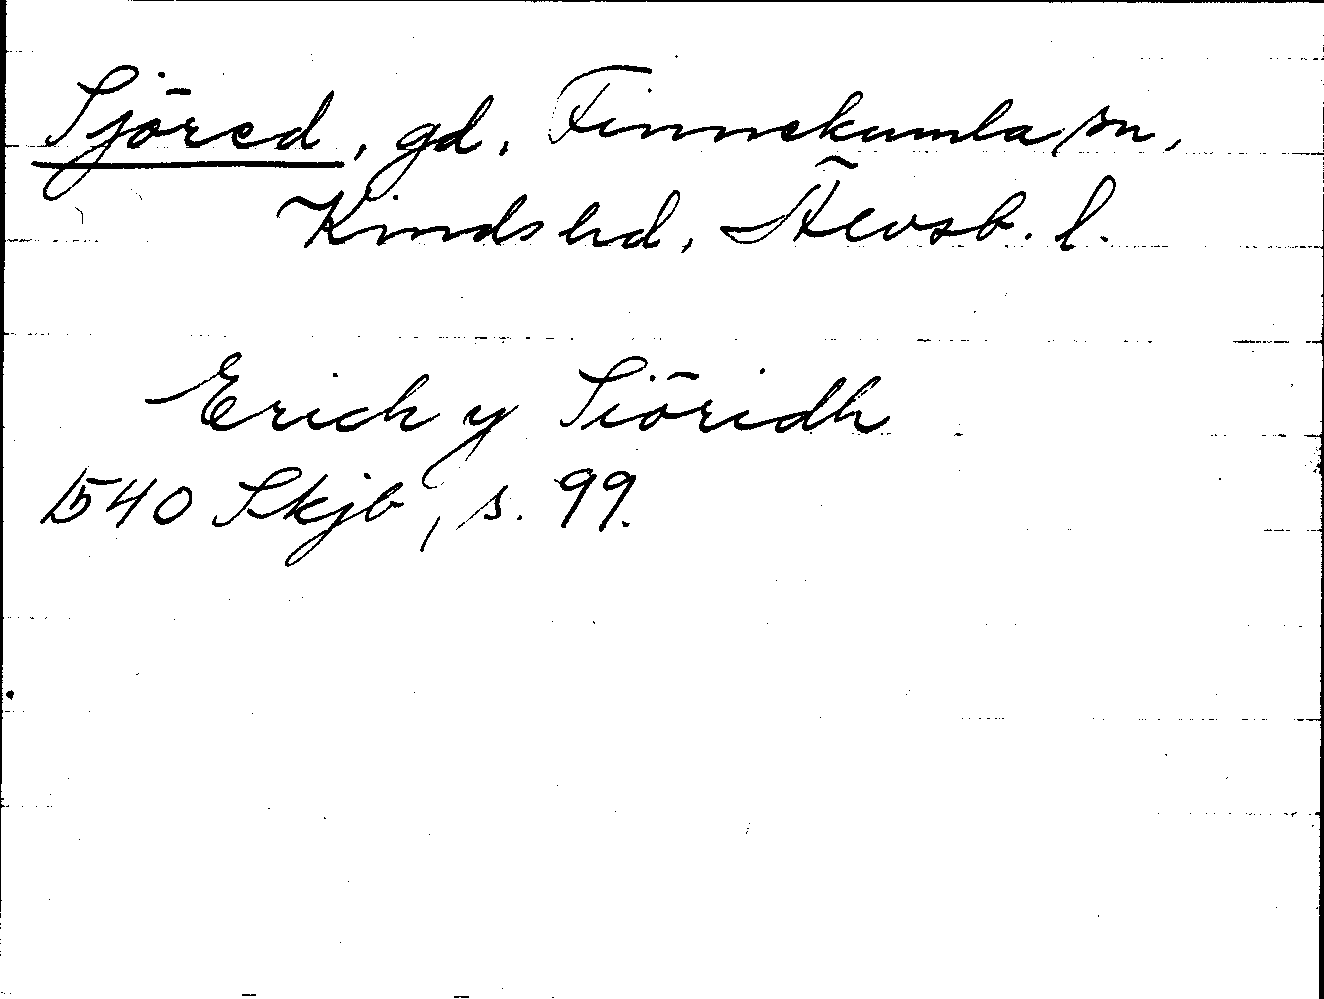 Sjöred, gd, Finnekumla sn,
Kinds hd, Älvsb. l.
Erich y Siöridh
1540 Skjb, s. 99.